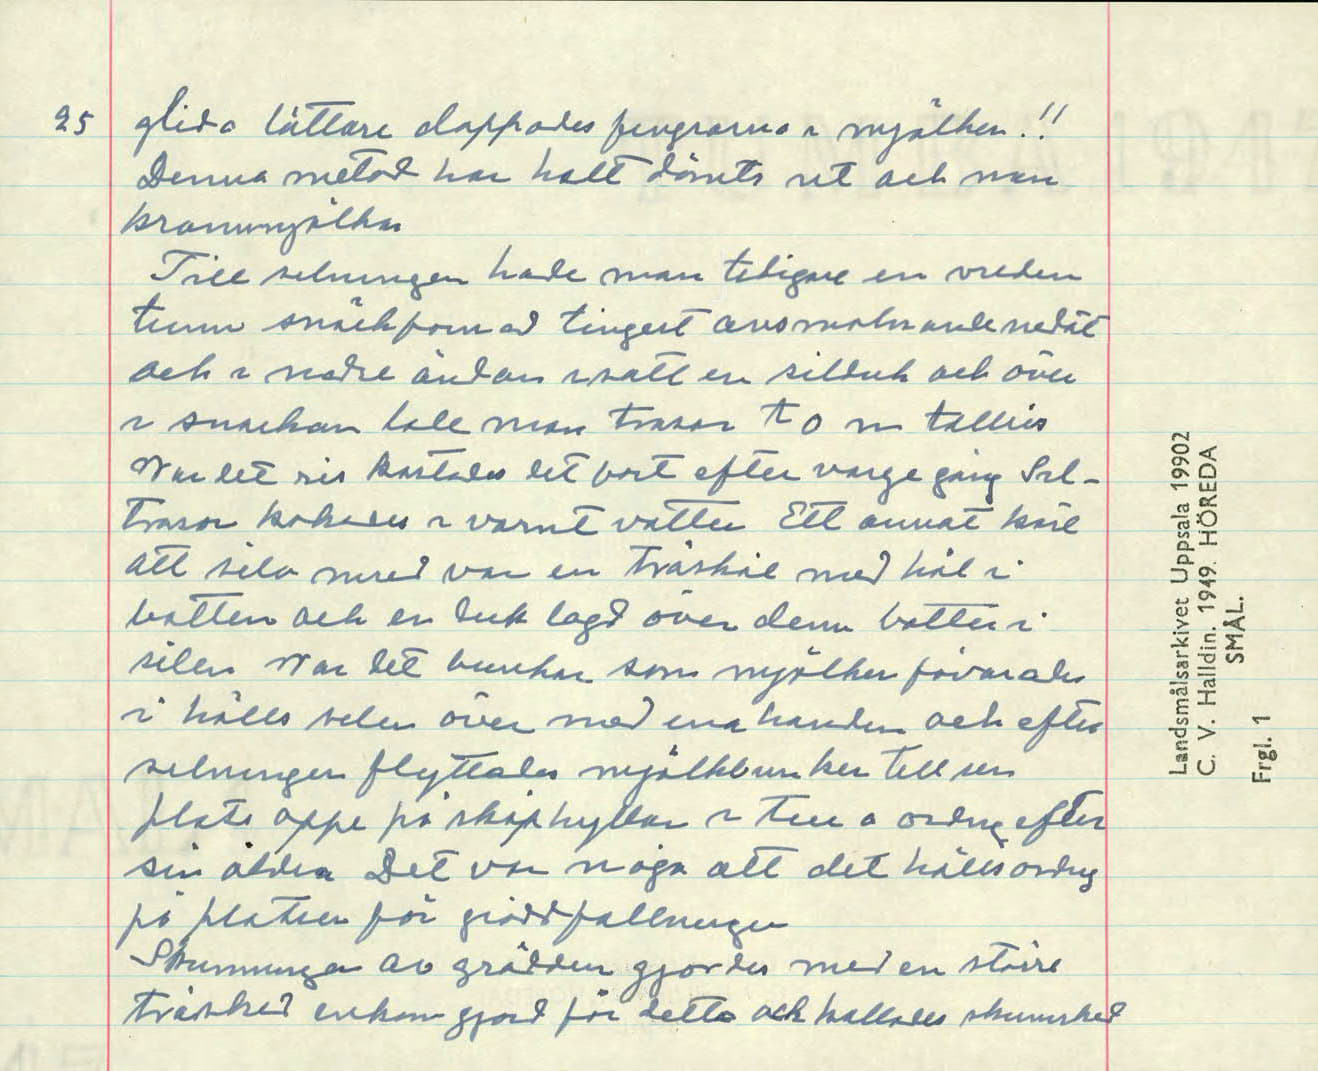 25 glida lättare doppades fingrarna i mjölken!!
Denna metod har helt dömts ut och man
krammjölkar
Till selningen hade man tidigare en vreden
tunn snäckformad tingest avsmalnande nedåt
och i nedre ändan isatt en silduk och över
i snäckan lade man trasor t o m tallris
Var det ris kastades det bort efter varje gång Sil-
trasor kokades i varmt vatten Ett annat kärl
att sila med var en träskål med hål i
botten och en duk lagd över denn botten i
silen Var det bunkar som mjölken förvarades
i hölls selen över med ena handen och efter
selningen flyttades mjölkbunken till sin
plats oppe på skåphyllan i tur o ordng efter
sin ålder Det var noga att det hölls ordng
på platsen för gräddfallningen
Skumningen av grädden gjordes med en större
träsked enkom gjord för detta och kallades skumsked
Landsmålsarkivet Uppsala 19902
C. V. Halldin. 1949. HÖREDA
SMÅL.
Frgl. 1